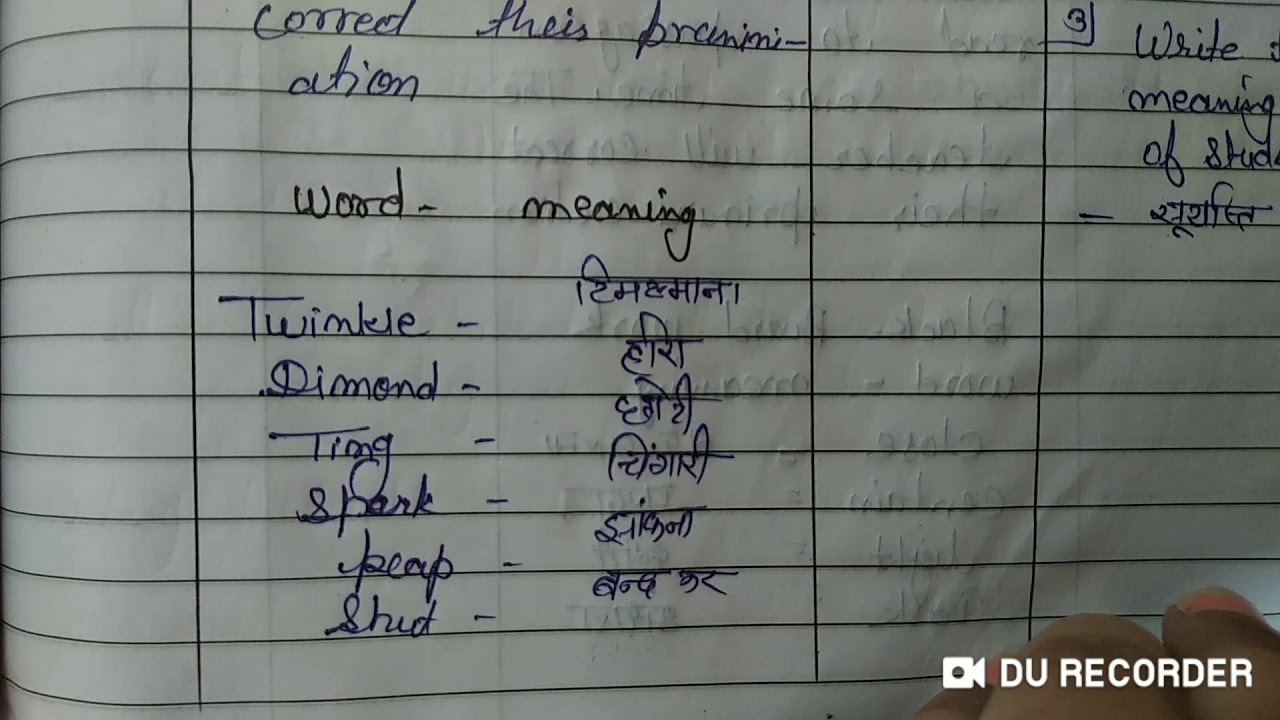 correct theis pranini-
ation
3) Write
meaning
of stud
word - meaning
- सूर्यास्त
टिमटमाना
Twinkle -
हीरा
Dimond -
छोटी
Tiny -
चिंगारी
Spark -
झांकना
peap -
बन्द कर
Shut -
DU RECORDER